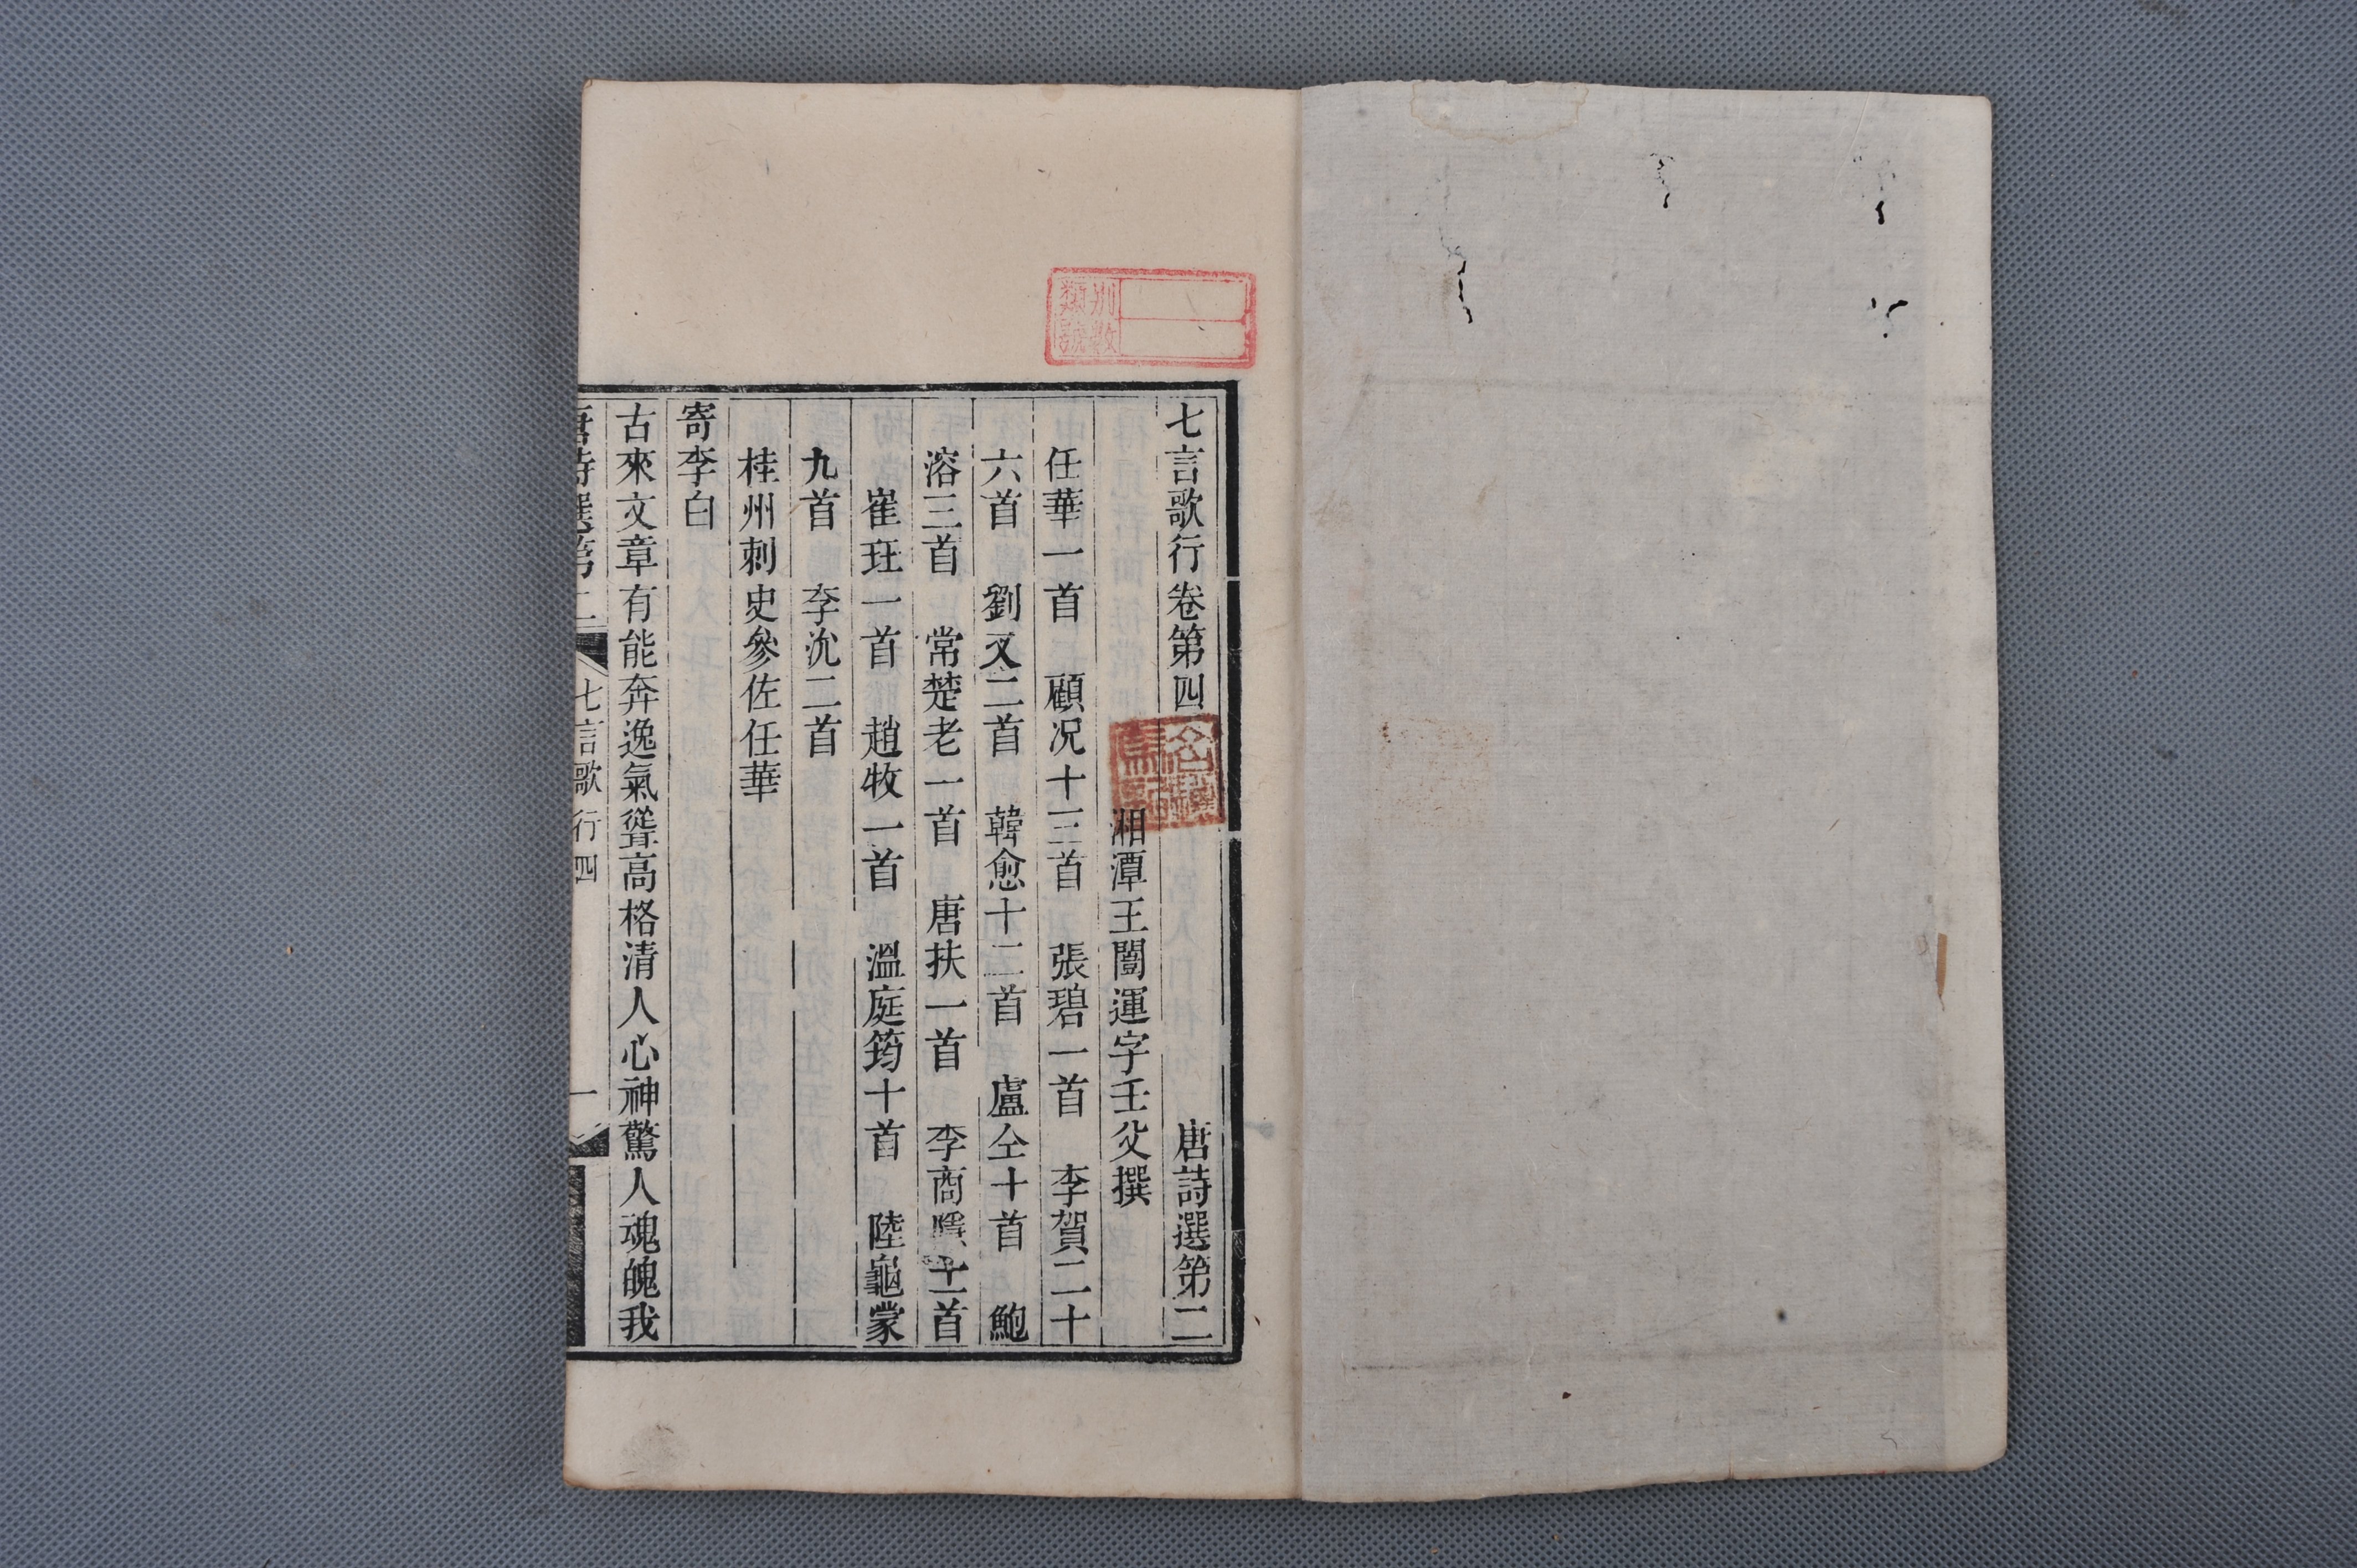 七言歌行卷第四 唐詩選第二
湘潭王闓運字壬父撰
任華一首 顧况十三首 張碧一首 李賀二十
六首 劉叉二首 韓愈十二首 盧仝十首 鮑
溶三首 常楚老一首 唐扶一首 李商隱十二首
崔珏一首 趙牧一首 溫庭筠十首 陸龜蒙
九首 李沇二首
桂州刺史參佐任華
寄李白
古來文章有能奔逸氣聳高格清人心神驚人魂魄我
唐詩選第二 七言歌行四 一
別類
數號